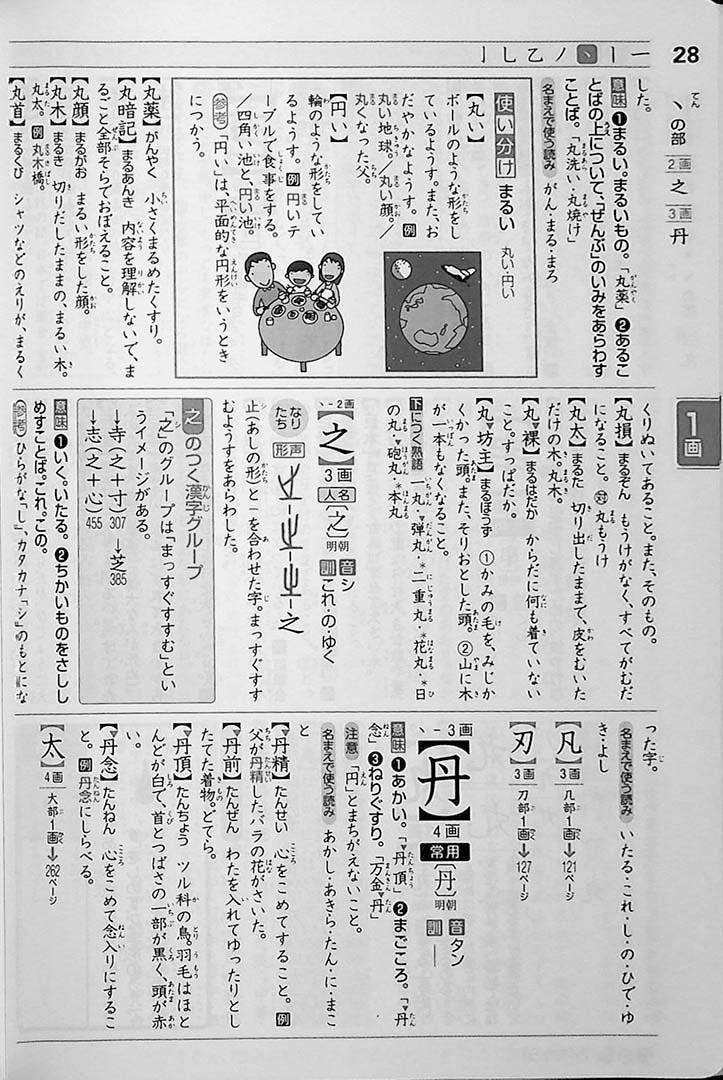 28
一｜丶ノ乙乚亅
丶の部 2画 之 3画 丹
1画
した。
意味 ❶まるい。まるいもの。「丸薬」❷あるこ
とばの上について、「ぜんぶ」のいみをあらわす
ことば。「丸洗い・丸焼け」
名まえで使う読み がん・まる・まろ
使い分け まるい 丸い・円い
【丸い】
ボールのような形をし
ているようす。また、お
だやかなようす。例
丸い地球。／丸い顔。／
丸くなった父。
【円い】
輪のような形をしてい
るようす。例円いテ
ーブルで食事をする。
／四角い池と、円い池。
参考「円い」は、平面的な円形をいうとき
につかう。
【丸薬】がんやく 小さくまるめたくすり。
【丸暗記】まるあんき 内容を理解しないで、ま
るごと全部そらでおぼえること。
【丸顔】まるがお まるい形をした顔。
【丸木】まるき 切りだしたままの、まるい木。
丸太。例丸木橋。
【丸首】まるくび シャツなどのえりが、まるく
くりぬいてあること。また、そのもの。
【丸損】まるぞん もうけがなく、すべてがむだ
になること。対丸もうけ
【丸太】まるた 切り出したままで、皮をむいた
だけの木。丸木。
【丸▼裸】まるはだか からだに何も着ていない
こと。すっぱだか。
【丸▼坊主】まるぼうず ①かみの毛を、みじか
くかった頭。また、そりおとした頭。②山に木
が一本もなくなること。
下につく熟語 一丸・▼弾丸・*二重丸・*花丸・*日
の丸・砲丸・*本丸
丶-2画
【之】3画 人名 〔之〕明朝 音シ 訓これ・の・ゆく
なりたち 形声
止（あしの形）と一を合わせた字。まっすぐすす
むようすをあらわした。
之のつく漢字グループ
「之」のグループは「まっすぐすすむ」とい
うイメージがある。
→寺（之＋寸）307 →芝385
→志（之＋心）455
意味 ❶いく。いたる。❷ちかいものをさしし
めすことば。これ。この。
参考 ひらがな「し」、カタカナ「シ」のもとにな
った字。
名まえで使う読み いたる・これ・し・の・ひで・ゆ
き・よし
【凡】3画 几部1画→121ページ
【刃】3画 刀部1画→127ページ
丶-3画
【丹】4画 常用 〔丹〕明朝 音タン 訓—
意味 ❶あかい。「▼丹頂」❷まごころ。「▼丹
念」❸ねりぐすり。「万金▼丹」
注意「円」とまちがえないこと。
名まえで使う読み あかし・あきら・たん・に・まこ
と
【▼丹精】たんせい 心をこめてすること。例
父が丹精したバラの花がさいた。
【▼丹前】たんぜん わたを入れてゆったりとし
たてた着物。どてら。
【▼丹頂】たんちょう ツル科の鳥。羽毛はほと
んどが白で、首とつばさの一部が黒く、頭が赤
い。
【▼丹念】たんねん 心をこめて念入りにするこ
と。例丹念にしらべる。
【太】4画 大部1画→262ページ